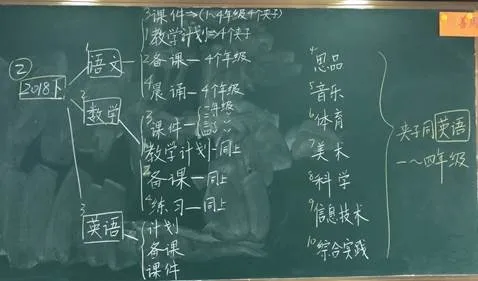 ② 2018下
1 语文
3 课件→(1~4年级4个夹子)
1 教学计划→4个夹子
2 备课—4个年级
4 晨诵—4个年级
2 数学
3 课件—
1 教学计划—同上
2 备课—同上
4 练习—同上
3 英语
计划
备课
课件
4 思品
5 音乐
6 体育
7 美术
8 科学
9 信息技术
10 综合实践
夹子同英语
一~四年级